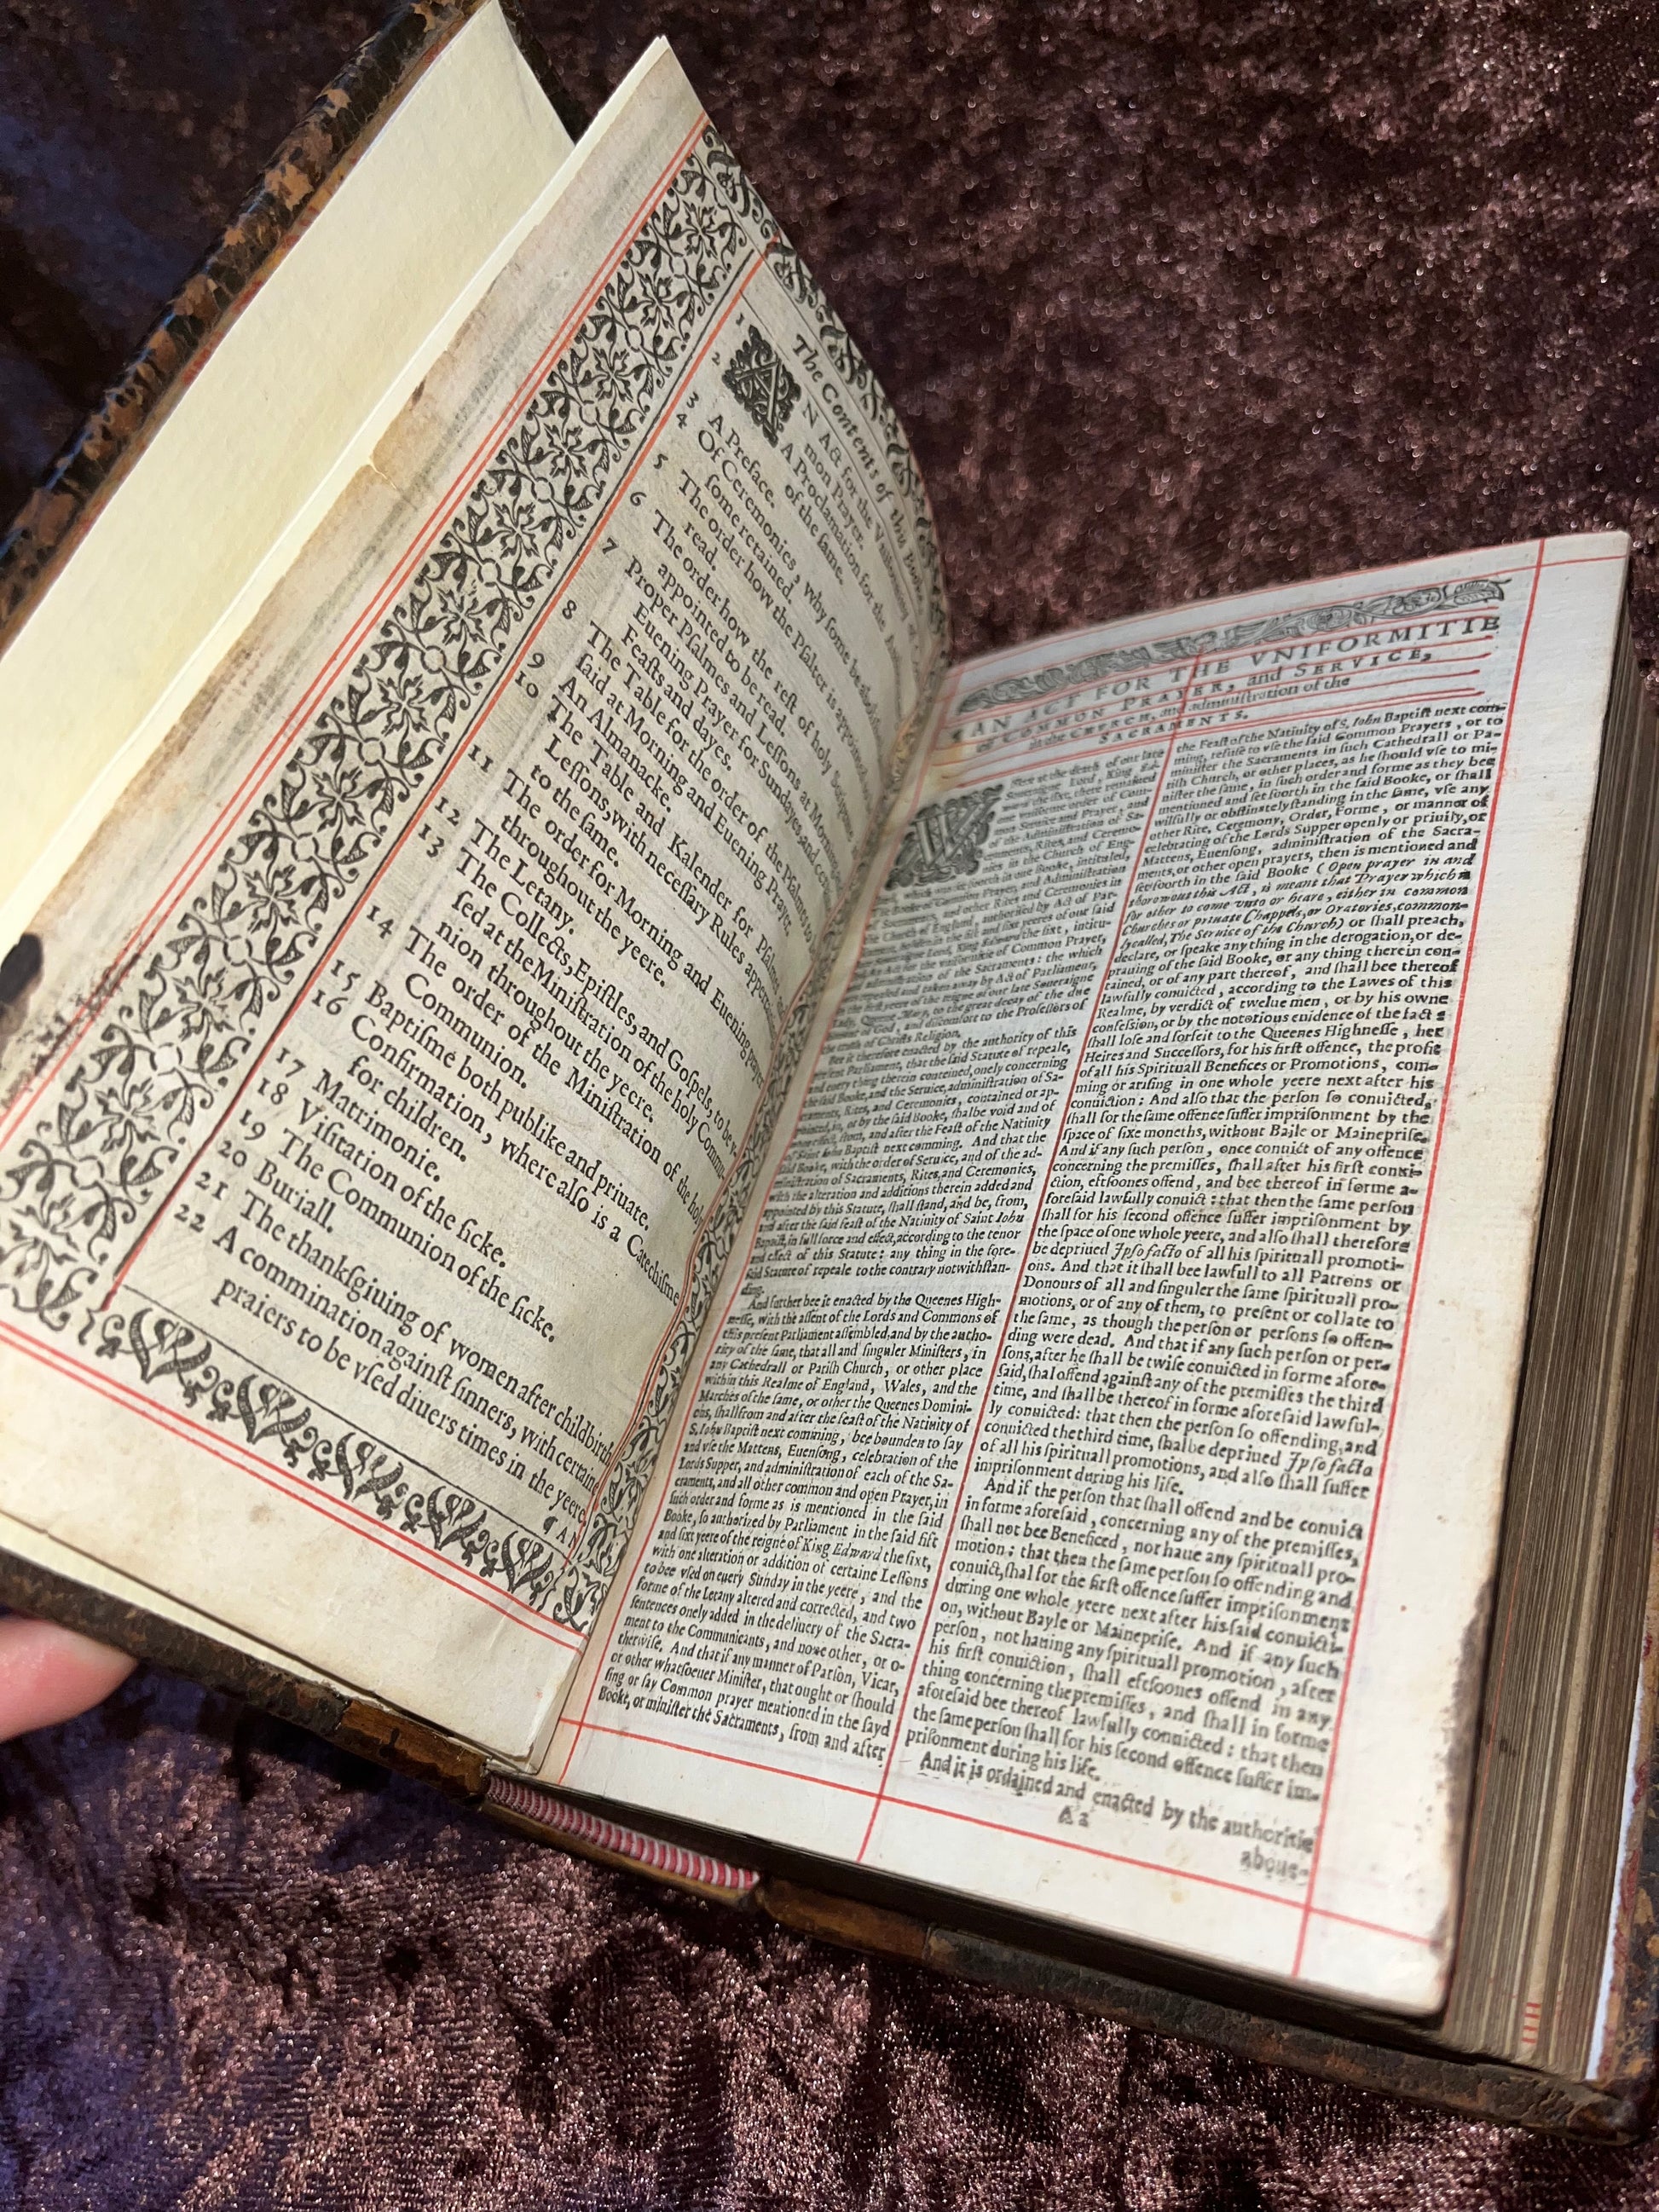 The Contents of this Booke.
1 AN Act for the Vniformity of
mon Prayer.
2 A Proclamation for the
of the same.
3 A Preface.
4 Of Ceremonies, why some be
some retained.
5 The order how the Psalter is appointed
read.
6 The order how the rest of holy Scripture
appointed to be read.
7 Proper Psalmes and Lessons at Morning
Euening Prayer for Sundayes, and
Feasts and dayes.
8 The Table for the order of the Psalmes to
said at Morning and Euening Prayer.
9 An Almanacke.
10 The Table and Kalender for Psalmes and
Lessons, with necessary Rules
to the same.
11 The order for Morning and Euening prayer
throughout the yeere.
12 The Letany.
13 The Collects, Epistles, and Gospels, to be v-
sed at the Ministration of the holy Commu-
nion throughout the yeere.
14 The order of the Ministration of the holy
Communion.
15 Baptisme both publike and priuate.
16 Confirmation, where also is a Catechisme
for children.
17 Matrimonie.
18 Visitation of the sicke.
19 The Communion of the sicke.
20 Buriall.
21 The thanksgiuing of women after childbirth
22 A commination against sinners, with certaine
praiers to be vsed diuers times in the yeere.
¶ AN
¶ AN ACT FOR THE VNIFORMITIE
of COMMON PRAYER, and SERVICE,
in the CHVRCH, and administration of the
SACRAMENTS.
Here at the death of our late
Soueraigne Lord, King Ed-
ward the sixt, there remained
one vniforme order of Com-
mon Seruice and Prayer, and
of the Administration of Sa-
craments, Rites, and Ceremo-
nies in the Church of Eng-
land, which was set foorth in one Booke, intituled,
The Booke of Common Prayer, and Administration
of Sacraments, and other Rites and Ceremonies in
the Church of England, authorised by Act of Par-
liament, holden in the fift and sixt yeeres of our said
late Soueraigne Lord, King Edward the sixt, intitu-
led, An Act for the vniformitie of Common Prayer,
and administration of the Sacraments: the which
was repealed and taken away by Act of Parliament,
in the first yeere of the reigne of our late Soueraigne
Lady, Queene Mary, to the great decay of the due
honour of God, and discomfort to the Professors of
the trueth of Christs Religion.
Bee it therefore enacted by the authority of this
present Parliament, that the said Statute of repeale,
and euery thing therein conteined, onely concerning
the said Booke, and the Seruice, administration of Sa-
craments, Rites, and Ceremonies, contained or ap-
pointed, in, or by the said Booke, shalbe void and of
none effect, from, and after the Feast of the Natiuity
of Saint Iohn Baptist next comming. And that the
said Booke, with the order of Seruice, and of the ad-
ministration of Sacraments, Rites, and Ceremonies,
with the alteration and additions therein added and
appointed by this Statute, shall stand, and be, from,
and after the said feast of the Natiuity of Saint Iohn
Baptist, in full force and effect, according to the tenor
and effect of this Statute: any thing in the fore-
said Statute of repeale to the contrary notwithstan-
ding.
And further bee it enacted by the Queenes High-
nesse, with the assent of the Lords and Commons of
this present Parliament assembled, and by the autho-
rity of the same, that all and singuler Ministers, in
any Cathedrall or Parish Church, or other place
within this Realme of England, Wales, and the
Marches of the same, or other the Queenes Domini-
ons, shall from and after the feast of the Natiuity of
S. Iohn Baptist next comming, bee bounden to say
and vse the Mattens, Euensong, celebration of the
Lords Supper, and administration of each of the Sa-
craments, and all other common and open Prayer, in
such order and forme as is mentioned in the said
Booke, so authorized by Parliament in the said fift
and sixt yeere of the reigne of King Edward the sixt,
with one alteration or addition of certaine Lessons
to bee vsed on euery Sunday in the yeere, and the
forme of the Letany altered and corrected, and two
sentences onely added in the deliuery of the Sacra-
ment to the Communicants, and none other, or o-
therwise. And that if any manner of Parson, Vicar,
or other whatsoeuer Minister, that ought or should
sing or say Common prayer mentioned in the sayd
Booke, or minister the Sacraments, from and after
the Feast of the Natiuity of S. Iohn Baptist next com-
ming, refuse to vse the said Common Prayers, or to
minister the Sacraments in such Cathedrall or Pa-
rish Church, or other places, as he should vse to mi-
nister the same, in such order and forme as they bee
mentioned and set foorth in the said Booke, or shall
wilfully or obstinately standing in the same, vse any
other Rite, Ceremony, Order, Forme, or manner of
celebrating of the Lords Supper openly or priuily, or
Mattens, Euensong, administration of the Sacra-
ments, or other open prayers, then is mentioned and
set foorth in the said Booke (Open prayer in and
thorowout this Act, is meant that Prayer which is
for other to come vnto or heare, either in common
Churches or priuate Chappels, or Oratories, common-
ly called, The Seruice of the Church) or shall preach,
declare, or speake any thing in the derogation, or de-
prauing of the said Booke, or any thing therein con-
tained, or of any part thereof, and shall bee thereof
lawfully conuicted, according to the Lawes of this
Realme, by verdict of twelue men, or by his owne
confession, or by the notorious euidence of the fact:
shall lose and forfeit to the Queenes Highnesse, her
Heires and Successors, for his first offence, the profit
of all his Spirituall Benefices or Promotions, com-
ming or arising in one whole yeere next after his
conuiction: And also that the person so conuicted,
shall for the same offence suffer imprisonment by the
space of sixe moneths, without Baile or Maineprise.
And if any such person, once conuict of any offence
concerning the premisses, shall after his first conui-
ction, eftsoones offend, and bee thereof in forme a-
foresaid lawfully conuict: that then the same person
shall for his second offence suffer imprisonment by
the space of one whole yeere, and also shall therefore
be depriued Ipso facto of all his spirituall promoti-
ons. And that it shall bee lawfull to all Patrons or
Donours of all and singuler the same spirituall pro-
motions, or of any of them, to present or collate to
the same, as though the person or persons so offen-
ding were dead. And that if any such person or per-
sons, after he shall be twise conuicted in forme afore-
said, shal offend against any of the premisses the third
time, and shall be thereof in forme aforesaid lawful-
ly conuicted: that then the person so offending, and
conuicted the third time, shalbe depriued Ipso facto
of all his spirituall promotions, and also shall suffer
imprisonment during his life.
And if the person that shall offend and be conuict
in forme aforesaid, concerning any of the premisses,
shall not bee Beneficed, nor haue any spirituall pro-
motion; that then the same person so offending and
conuict, shal for the first offence suffer imprisonment
during one whole yeere next after his said conuicti-
on, without Bayle or Maineprise. And if any such
person, not hauing any spirituall promotion, after
his first conuiction, shall eftsoones offend in any
thing concerning the premisses, and shall in forme
aforesaid bee thereof lawfully conuicted: that then
the same person shall for his second offence suffer im-
prisonment during his life.
And it is ordained and enacted by the authoritie
A 2
aboue-